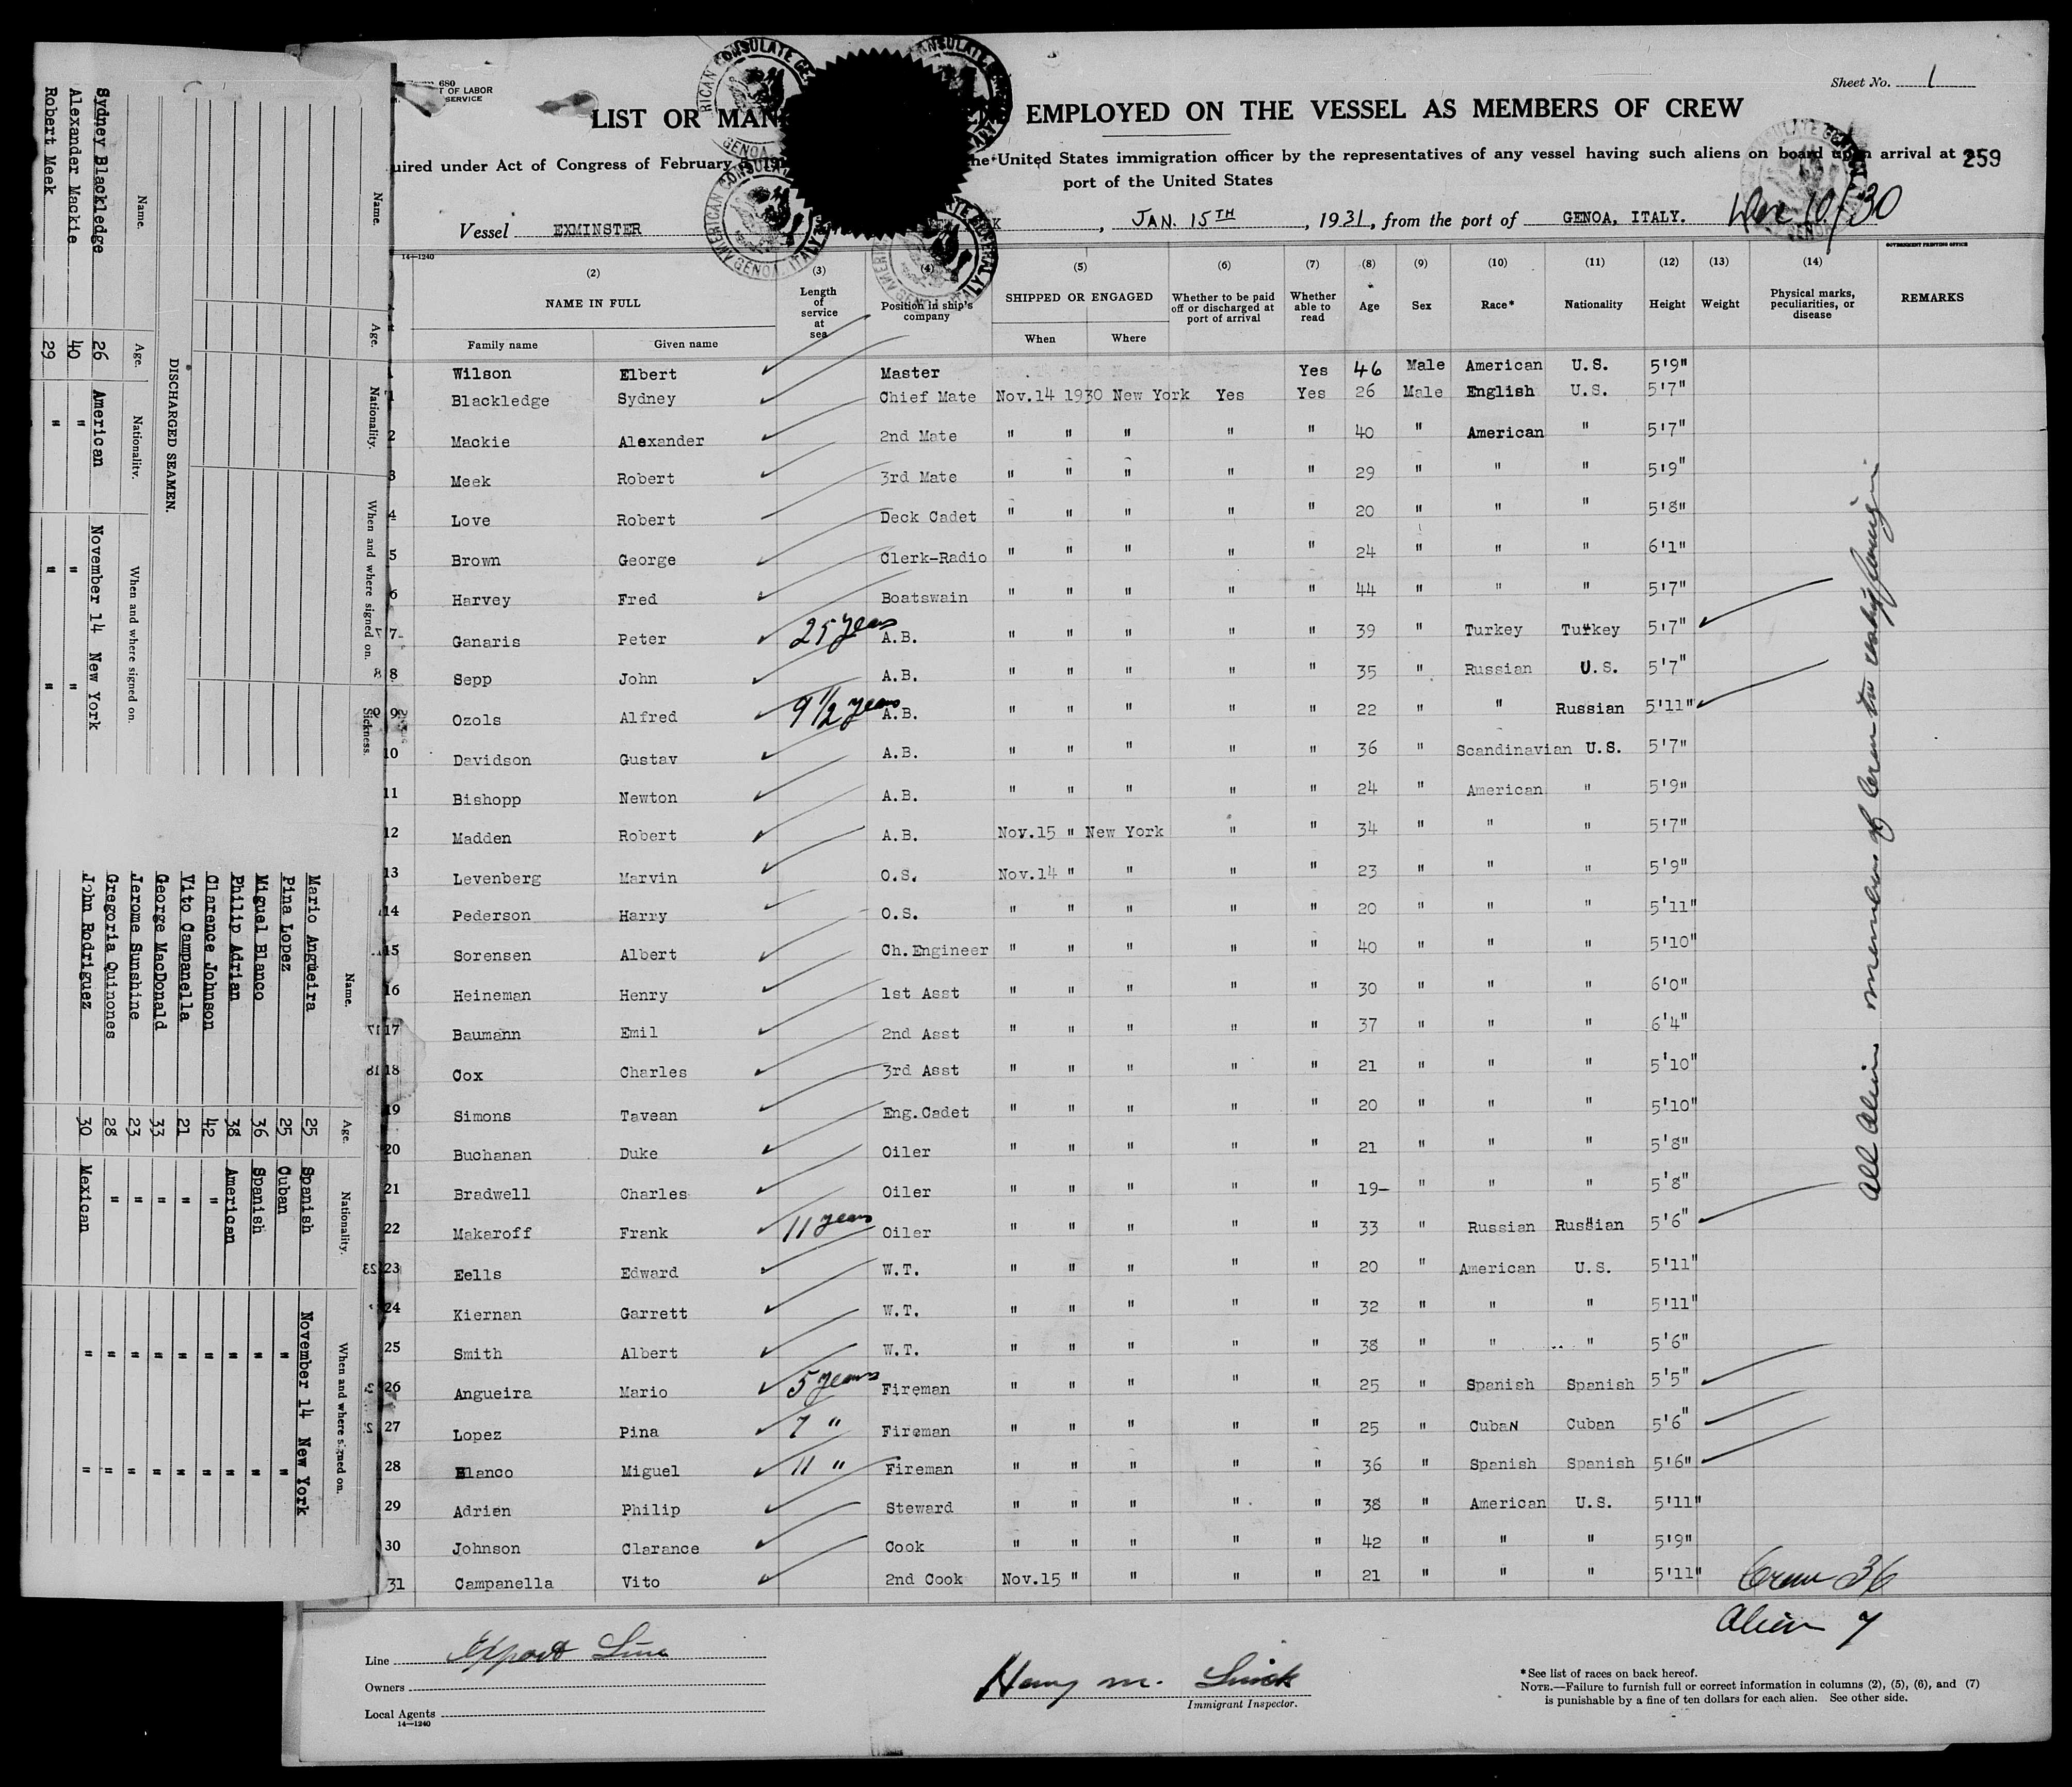 Sheet No. 1
680
T OF LABOR
SERVICE
LIST OR MAN EMPLOYED ON THE VESSEL AS MEMBERS OF CREW
uired under Act of Congress of February he United States immigration officer by the representatives of any vessel having such aliens on board upon arrival at 259
port of the United States
Vessel EXMINSTER , JAN. 15TH , 1931, from the port of GENOA, ITALY. 10/30
AMERICAN CONSULATE GENERAL
GENOA, ITALY
14—1240
GOVERNMENT PRINTING OFFICE
(2) (3) (4) (5) (6) (7) (8) (9) (10) (11) (12) (13) (14)
NAME IN FULL Length of service at sea Position in ship's company SHIPPED OR ENGAGED Whether to be paid off or discharged at port of arrival Whether able to read Age Sex Race* Nationality Height Weight Physical marks, peculiarities, or disease REMARKS
Family name Given name When Where
Wilson Elbert Master Yes 46 Male American U.S. 5'9"
1 Blackledge Sydney Chief Mate Nov.14 1930 New York Yes Yes 26 Male English U.S. 5'7"
2 Mackie Alexander 2nd Mate " " " " " 40 " American " 5'7"
3 Meek Robert 3rd Mate " " " " " 29 " " " 5'9"
4 Love Robert Deck Cadet " " " " " 20 " " " 5'8"
5 Brown George Clerk-Radio " " " " " 24 " " " 6'1"
6 Harvey Fred Boatswain " " " " " 44 " " " 5'7"
7 Ganaris Peter 25 years A.B. " " " " " 39 " Turkey Turkey 5'7"
8 Sepp John A.B. " " " " " 35 " Russian U.S. 5'7"
9 Ozols Alfred 9 1/2 years A.B. " " " " " 22 " " Russian 5'11"
10 Davidson Gustav A.B. " " " " " 36 " Scandinavian U.S. 5'7"
11 Bishopp Newton A.B. " " " " " 24 " American " 5'9"
12 Madden Robert A.B. Nov.15 " New York " " 34 " " " 5'7"
13 Levenberg Marvin O.S. Nov.14 " " " " 23 " " " 5'9"
14 Pederson Harry O.S. " " " " " 20 " " " 5'11"
15 Sorensen Albert Ch.Engineer " " " " " 40 " " " 5'10"
16 Heineman Henry 1st Asst " " " " " 30 " " " 6'0"
17 Baumann Emil 2nd Asst " " " " " 37 " " " 6'4"
18 Cox Charles 3rd Asst " " " " " 21 " " " 5'10"
19 Simons Tavean Eng.Cadet " " " " " 20 " " " 5'10"
20 Buchanan Duke Oiler " " " " " 21 " " " 5'8"
21 Bradwell Charles Oiler " " " " " 19- " " " 5'8"
22 Makaroff Frank 11 years Oiler " " " " " 33 " Russian Russian 5'6"
23 Eells Edward W.T. " " " " " 20 " American U.S. 5'11"
24 Kiernan Garrett W.T. " " " " " 32 " " " 5'11"
25 Smith Albert W.T. " " " " " 38 " " " 5'6"
26 Angueira Mario 5 years Fireman " " " " " 25 " Spanish Spanish 5'5"
27 Lopez Pina 7 " Fireman " " " " " 25 " Cuban Cuban 5'6"
28 Blanco Miguel 11 " Fireman " " " " " 36 " Spanish Spanish 5'6"
29 Adrien Philip Steward " " " " " 38 " American U.S. 5'11"
30 Johnson Clarance Cook " " " " " 42 " " " 5'9"
31 Campanella Vito 2nd Cook Nov.15 " " " " 21 " " " 5'11"
All Alien members of Crew
Crew 36
Alien 7
Line Export Line
Owners
Local Agents
14—1240
Henry M.
Immigrant Inspector.
*See list of races on back hereof.
NOTE.—Failure to furnish full or correct information in columns (2), (5), (6), and (7)
is punishable by a fine of ten dollars for each alien. See other side.
Name. Age. Nationality. When and where signed on. Sickness.
DISCHARGED SEAMEN.
Name. Age. Nationality. When and where signed on.
Sydney Blackledge 26 American November 14 New York
Alexander Mackie 40 " " "
Robert Meek 29 " " "
Name. Age. Nationality. When and where signed on.
Mario Angueira 25 Spanish November 14 New York
Pina Lopez 25 Cuban " "
Miguel Blanco 36 Spanish " "
Philip Adrian 38 American " "
Clarence Johnson 42 " " "
Vito Campanella 21 " " "
George MacDonald 33 " " "
Jerome Sunshine 23 " " "
Gregoria Quinones 28 " " "
John Rodriguez 30 Mexican " "